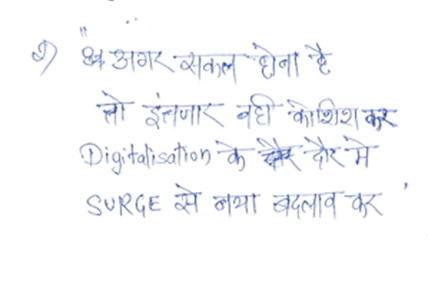 २) " अगर सफल होना है
तो इंतजार नही कोशिश कर
Digitalisation के दौर मे
SURGE से नया बदलाव कर '